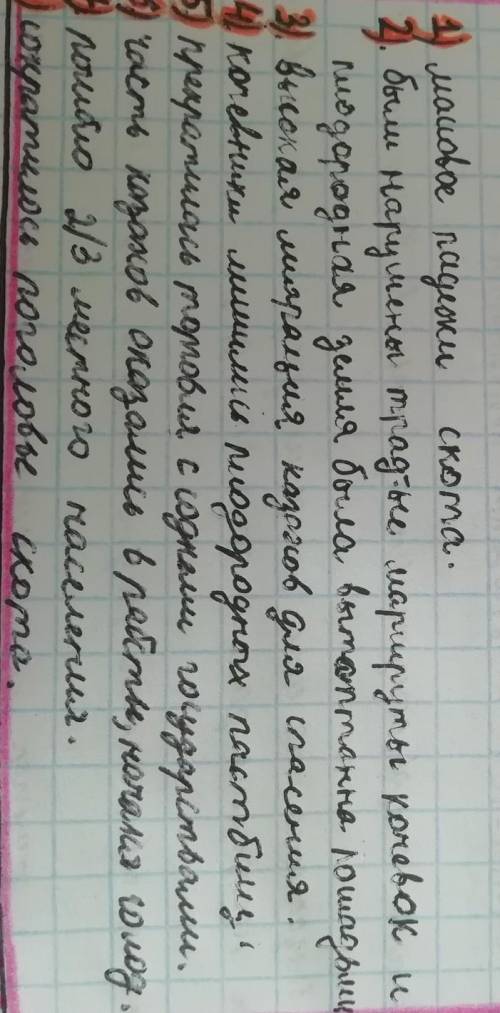 1) массовое падежи скота.
2). были нарушены трад-ые маршруты кочевок и
плодородная земля была вытоптанна лошадьми
3) высокая миграция казахов для спасения.
4) кочевники лишились плодородных пастбищ;
5) прекратилась торговля с соднами государствами.
6) часть казахов оказались в рабстве, начался голод.
погибло 2/3 местного населения.
сократилось поголовье скота.